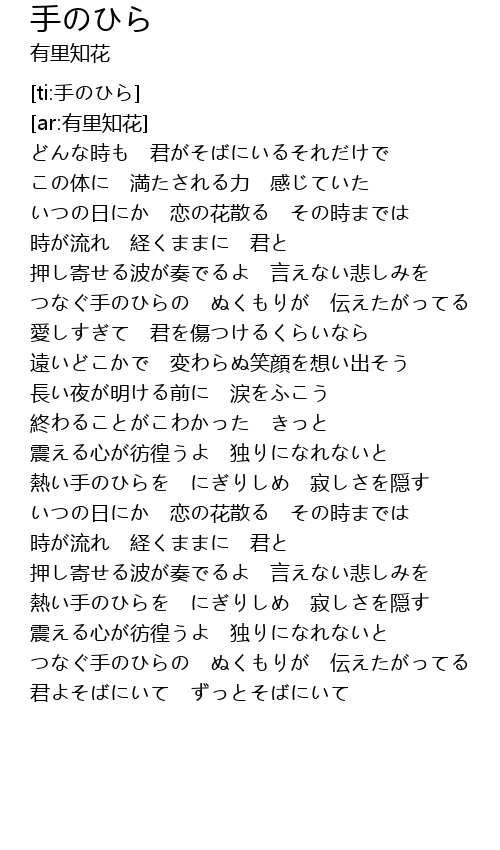 手のひら
有里知花
[ti:手のひら]
[ar:有里知花]
どんな時も　君がそばにいるそれだけで
この体に　満たされる力　感じていた
いつの日にか　恋の花散る　その時までは
時が流れ　経くままに　君と
押し寄せる波が奏でるよ　言えない悲しみを
つなぐ手のひらの　ぬくもりが　伝えたがってる
愛しすぎて　君を傷つけるくらいなら
遠いどこかで　変わらぬ笑顔を想い出そう
長い夜が明ける前に　涙をふこう
終わることがこわかった　きっと
震える心が彷徨うよ　独りになれないと
熱い手のひらを　にぎりしめ　寂しさを隠す
いつの日にか　恋の花散る　その時までは
時が流れ　経くままに　君と
押し寄せる波が奏でるよ　言えない悲しみを
熱い手のひらを　にぎりしめ　寂しさを隠す
震える心が彷徨うよ　独りになれないと
つなぐ手のひらの　ぬくもりが　伝えたがってる
君よそばにいて　ずっとそばにいて